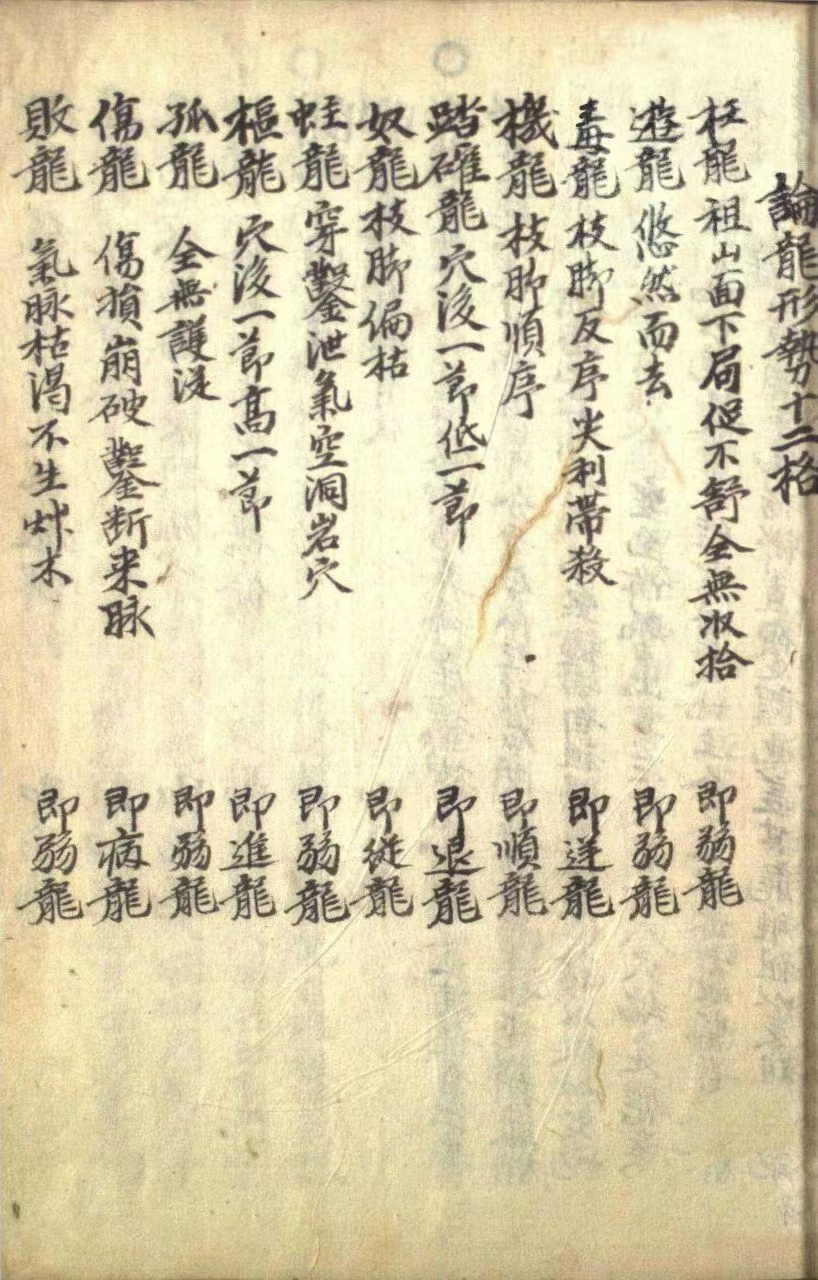 論龍形勢十二格
枉龍 祖山面下局促不舒全無收拾 即弱龍
遊龍 悠然而去 即弱龍
毒龍 枝脚反序尖利帶殺 即逆龍
機龍 枝脚順序 即順龍
踏碓龍 穴後一節低一節 即退龍
奴龍 枝脚偏枯 即從龍
蛀龍 穿鑿泄氣空洞岩穴 即弱龍
樞龍 穴後一節高一節 即進龍
孤龍 全無護從 即弱龍
傷龍 傷損崩破鑿断来脉 即病龍
敗龍 氣脉枯渴不生艸木 即弱龍